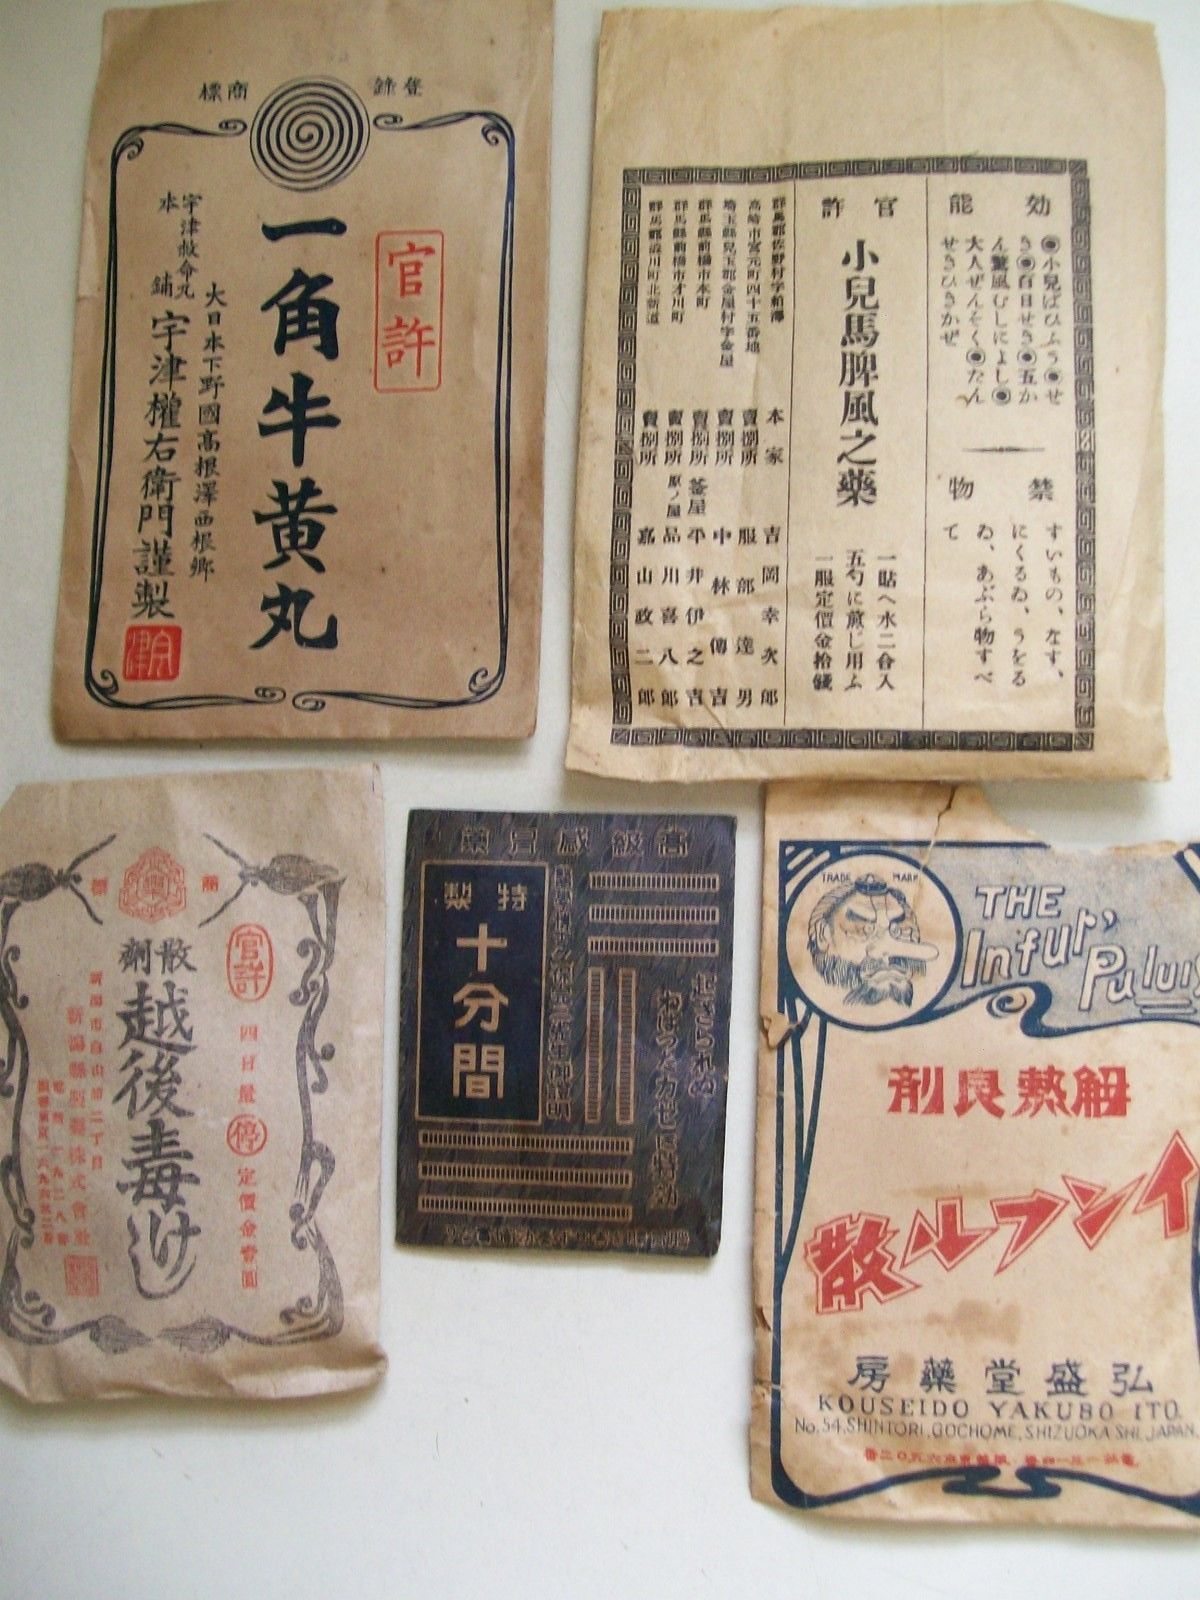 登錄商標
官許
一角牛黄丸
大日本下野國高根澤西根郷
宇津救命丸
本舗
宇津權右衛門謹製
効能
◉小兒ばひふう◉せ
き◉百日せき◉五か
ん驚風むしによし◉
大人ぜんそく◉たん
せきひきかぜ
禁物
すいもの、なす、
にくるゐ、うをる
ゐ、あぶら物すべ
て
官許
小兒馬脾風之藥
一貼へ水二合入
五勺に煎じ用ふ
一服定價金拾錢
本家 吉岡幸次郎
高崎市宮元町四十五番地 賣捌所 服部達男
埼玉縣兒玉郡金屋村字金屋 賣捌所 中林傳吉
群馬縣前橋市本町 賣捌所 釜屋 平井伊之吉
群馬縣前橋市才川町 賣捌所 原ノ屋 品川喜八郎
群馬郡澁川町北新道 賣捌所 嘉山政二郎
商標
官許
四日量 停 定價金壹圓
散劑
越後毒けし
新潟市白山浦二丁目
新潟縣製藥株式會社
高級感冒藥
特製
十分間
TRADE MARK
THE
Infur' Puluis
解熱良剤
インフル散
弘盛堂藥房
KOUSEIDO YAKUBO ITO.
No.54,SHINTORI,GOCHOME,SHIZUOKA SHI,JAPAN.